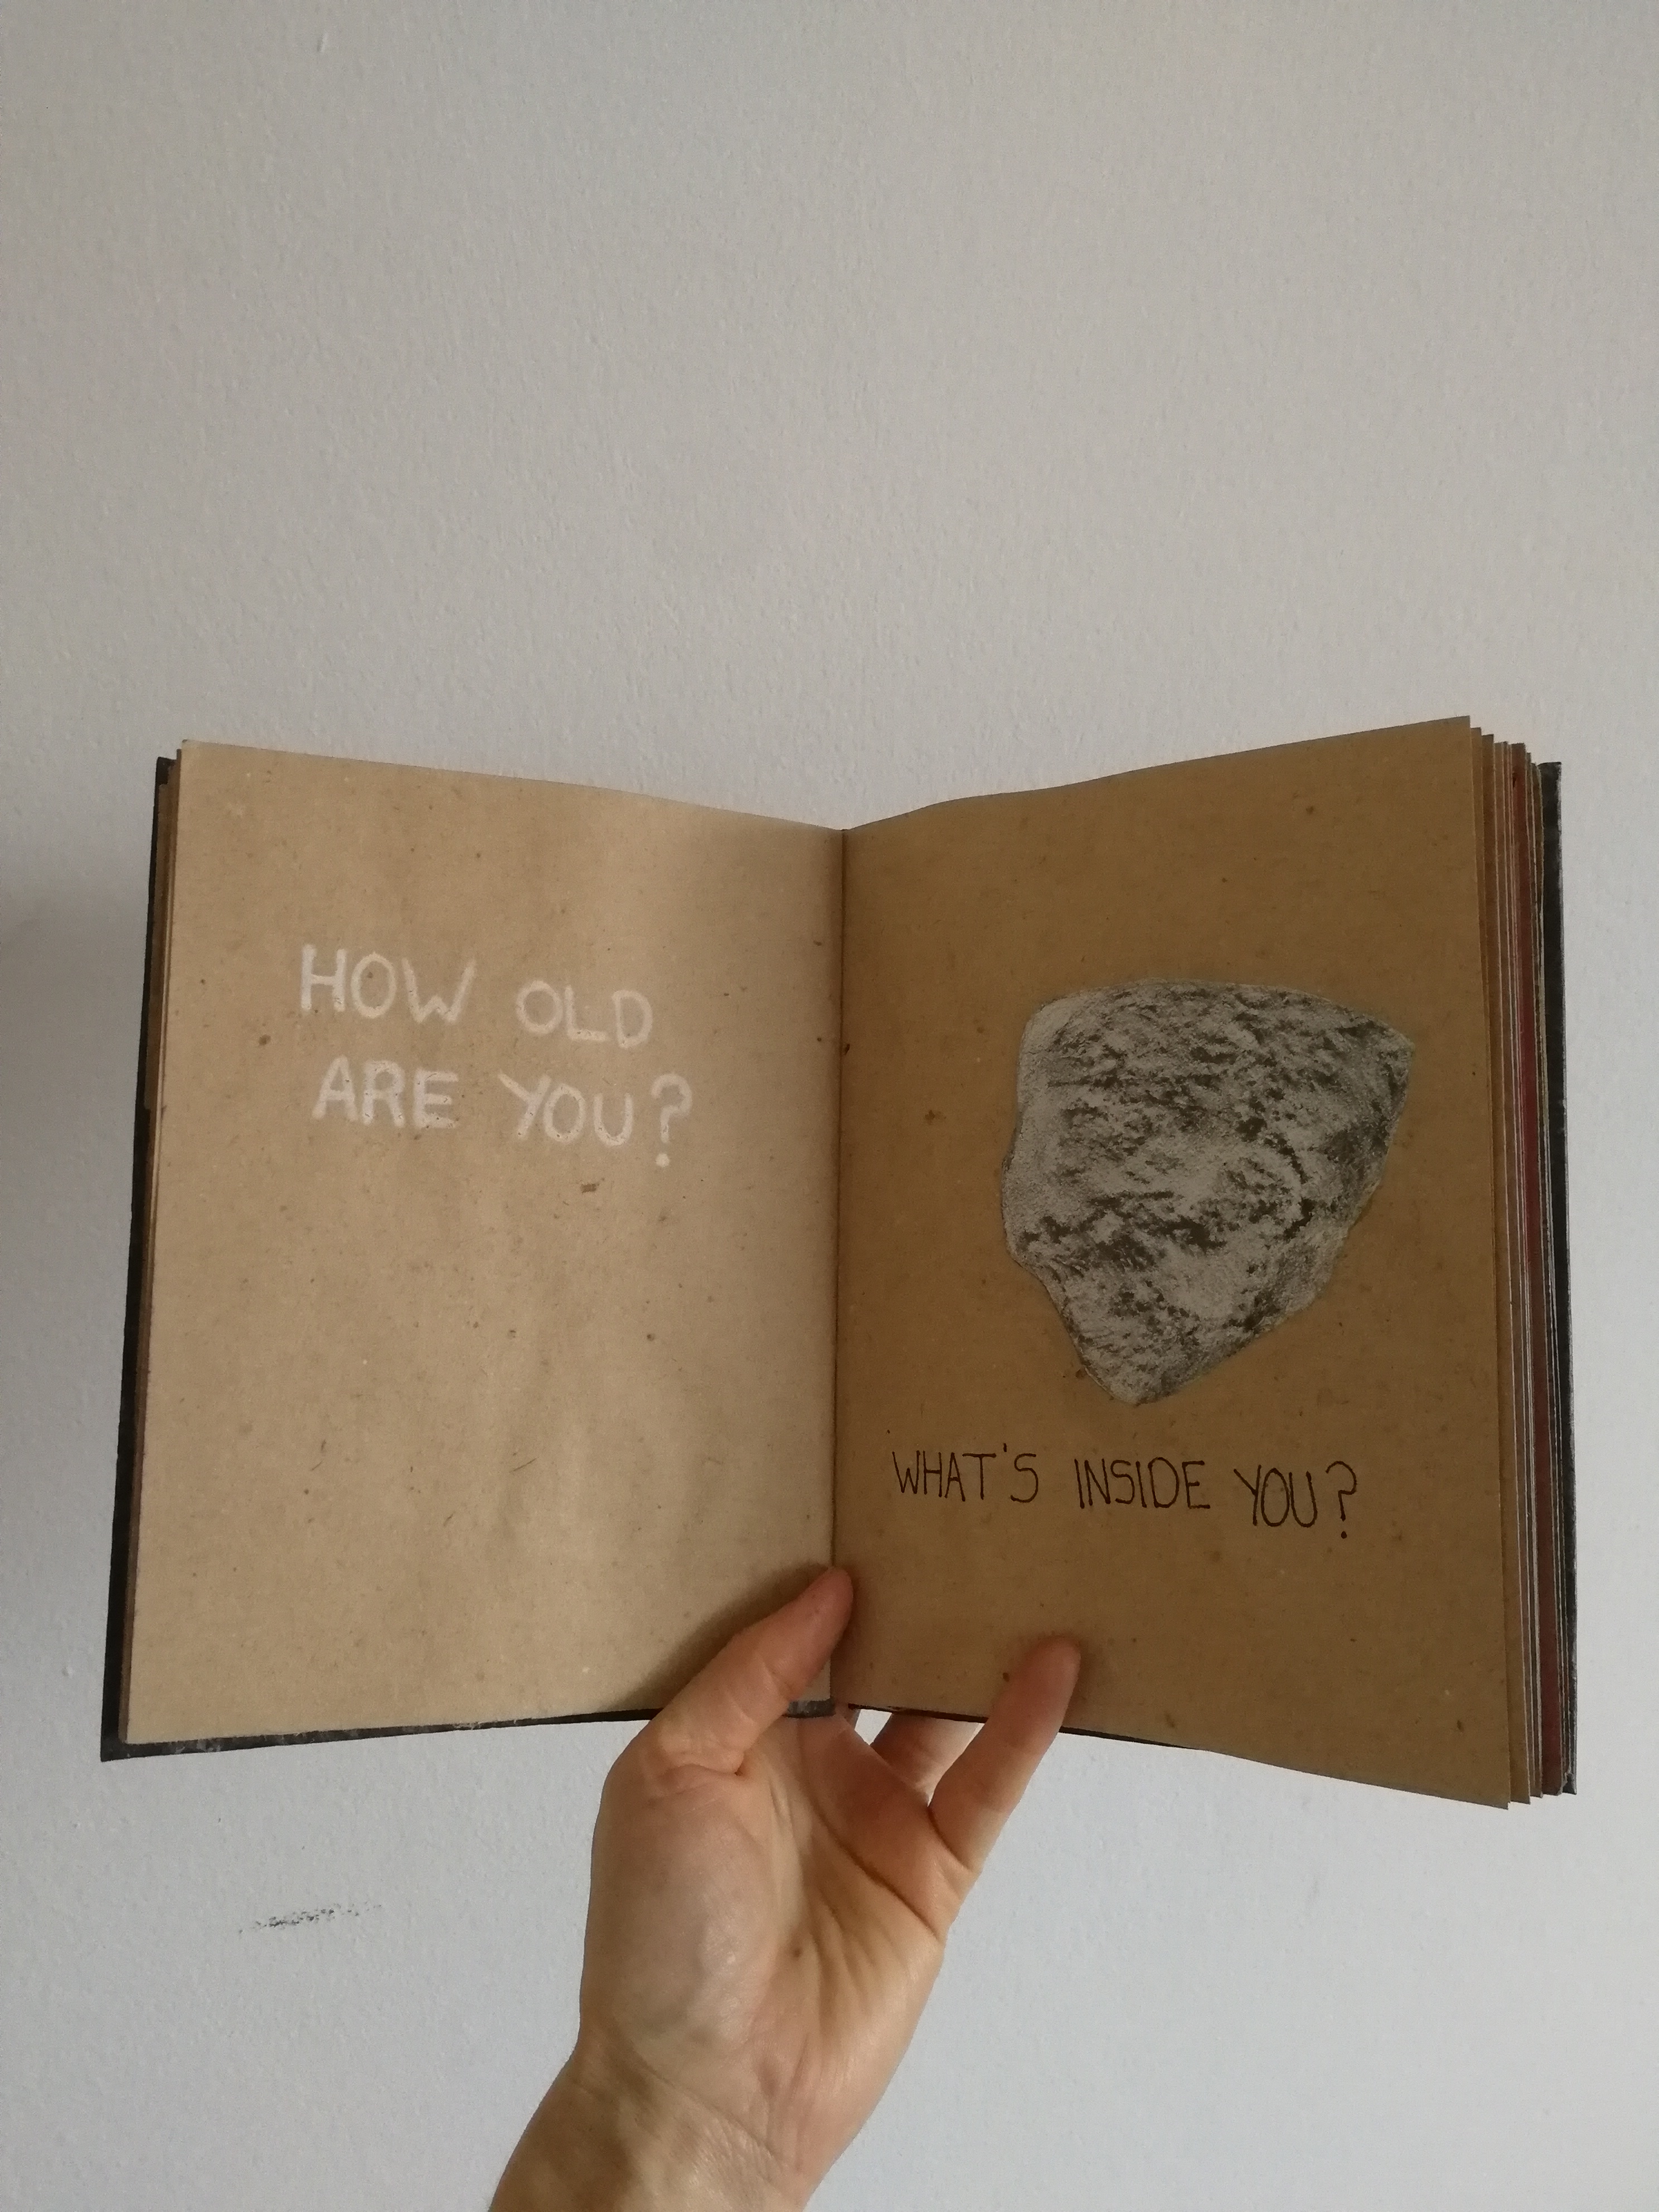 HOW OLD
ARE YOU?
WHAT'S INSIDE YOU?